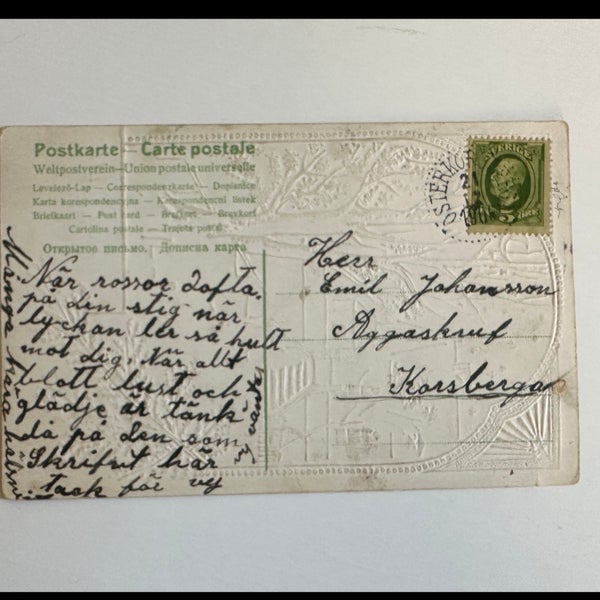 Postkarte — Carte postale
Weltpostverein — Union postale universelle
Levelező-Lap — Correspondenzkarte — Dopisnice
Karta korespondencyjna — Korespondenční lístek
Briefkaart — Post card — Brefkort — Brevkort
Cartolina postale — Tarjeta postal
Открытое письмо. Дописна карта
SVERIGE
5 ÖRE
ÖSTERKOR
Herr
Emil Johansson
Aggaskruf
Korsberga
När rossor dofta
på din stig när
lyckan ler så hult
mot dig. När allt
blott lust och
glädje är tänk
då på den som
Skrifvit här
tack för vy
Många kära hälsn